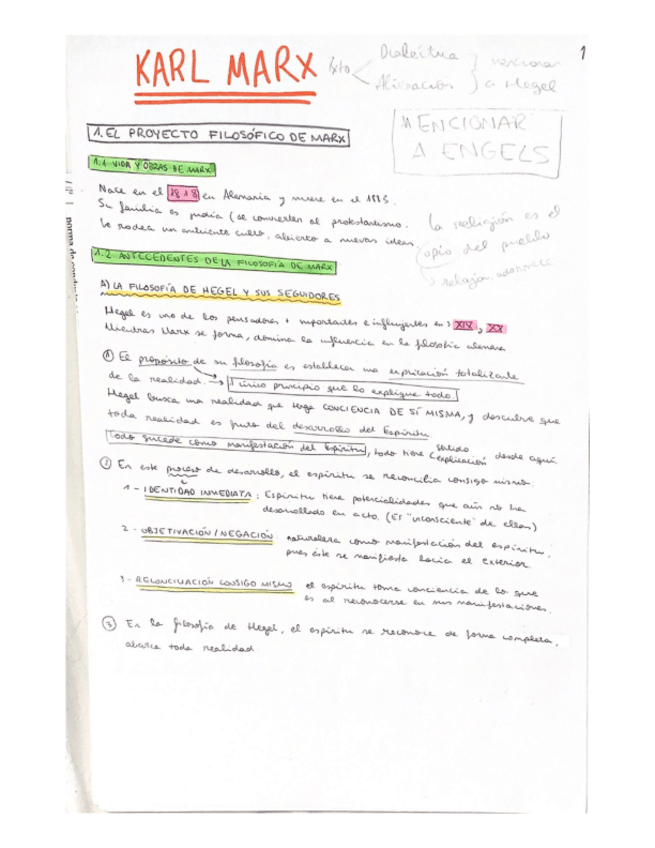 KARL MARX
Dialéctica
Alienación
mencionar
a Hegel
1
MENCIONAR
A ENGELS
1. EL PROYECTO FILOSÓFICO DE MARX
1.1 VIDA Y OBRAS DE MARX
Nace en el 1818 en Alemania y muere en el 1883.
Su familia es judía (se convierten al protestantismo.
Le rodea un ambiente culto, abierto a nuevas ideas.
la religión es el
opio del pueblo
1.2 ANTECEDENTES DE LA FILOSOFÍA DE MARX
A) LA FILOSOFÍA DE HEGEL Y SUS SEGUIDORES
Hegel es uno de los pensadores + importantes e influyentes en s XIX, XX
Mientras Marx se forma, domina la influencia en la filosofía alemana
① El propósito de su filosofía es establecer una explicación totalizante
de la realidad. → 1 único principio que lo explique todo
Hegel busca una realidad que tenga CONCIENCIA DE SÍ MISMA, y descubre que
toda realidad es fruto del desarrollo del Espíritu.
Todo sucede como manifestación del Espíritu, todo tiene sentido explicación desde aquí.
② En este proceso de desarrollo, el espíritu se reconcilia consigo mismo:
1 - IDENTIDAD INMEDIATA : Espíritu tiene potencialidades que aún no ha
desarrollado en acto. (Es "inconsciente" de ellas)
2 - OBJETIVACIÓN / NEGACIÓN naturaleza como manifestación del espíritu,
pues éste se manifiesta hacia el exterior
3 - RECONCILIACIÓN CONSIGO MISMO el espíritu toma conciencia de lo que
es al reconocerse en sus manifestaciones.
③ En la filosofía de Hegel, el espíritu se reconoce de forma completa,
abarca toda realidad